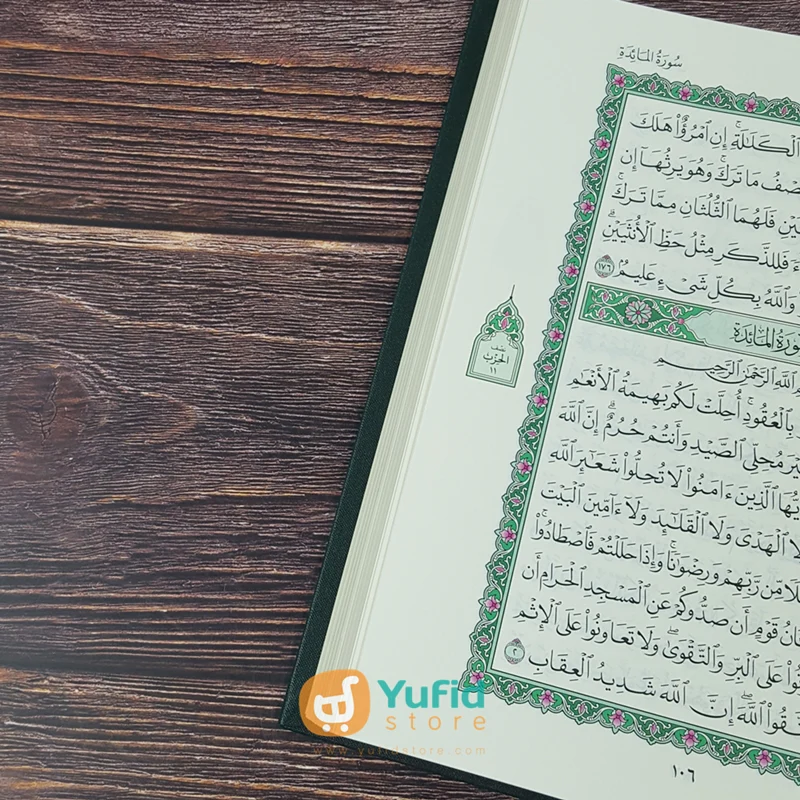 سُورَةُ المَائِدَةِ
ٱلْكَلَٰلَةِۚ إِنِ ٱمْرُؤٌا۟ هَلَكَ
مَا تَرَكَۚ وَهُوَ يَرِثُهَآ إِن
فَلَهُمَا ٱلثُّلُثَانِ مِمَّا تَرَكَۚ
فَلِلذَّكَرِ مِثْلُ حَظِّ ٱلْأُنثَيَيْنِۗ
وَٱللَّهُ بِكُلِّ شَىْءٍ عَلِيمٌۢ ١٧٦
نِصْفُ
الحِزْبِ
١١
سُورَةُ المَائِدَةِ
ٱللَّهِ ٱلرَّحْمَٰنِ ٱلرَّحِيمِ
بِٱلْعُقُودِۚ أُحِلَّتْ لَكُم بَهِيمَةُ ٱلْأَنْعَٰمِ
مُحِلِّى ٱلصَّيْدِ وَأَنتُمْ حُرُمٌۗ إِنَّ ٱللَّهَ
ٱلَّذِينَ ءَامَنُوا۟ لَا تُحِلُّوا۟ شَعَٰٓئِرَ ٱللَّهِ
ٱلْهَدْىَ وَلَا ٱلْقَلَٰٓئِدَ وَلَآ ءَآمِّينَ ٱلْبَيْتَ
مِّن رَّبِّهِمْ وَرِضْوَٰنًاۚ وَإِذَا حَلَلْتُمْ فَٱصْطَادُوا۟ۚ
قَوْمٍ أَن صَدُّوكُمْ عَنِ ٱلْمَسْجِدِ ٱلْحَرَامِ أَن
عَلَى ٱلْبِرِّ وَٱلتَّقْوَىٰۖ وَلَا تَعَاوَنُوا۟ عَلَى ٱلْإِثْمِ
ٱللَّهَۖ إِنَّ ٱللَّهَ شَدِيدُ ٱلْعِقَابِ ٢
١٠٦
Yufid
store
www.yufidstore.com